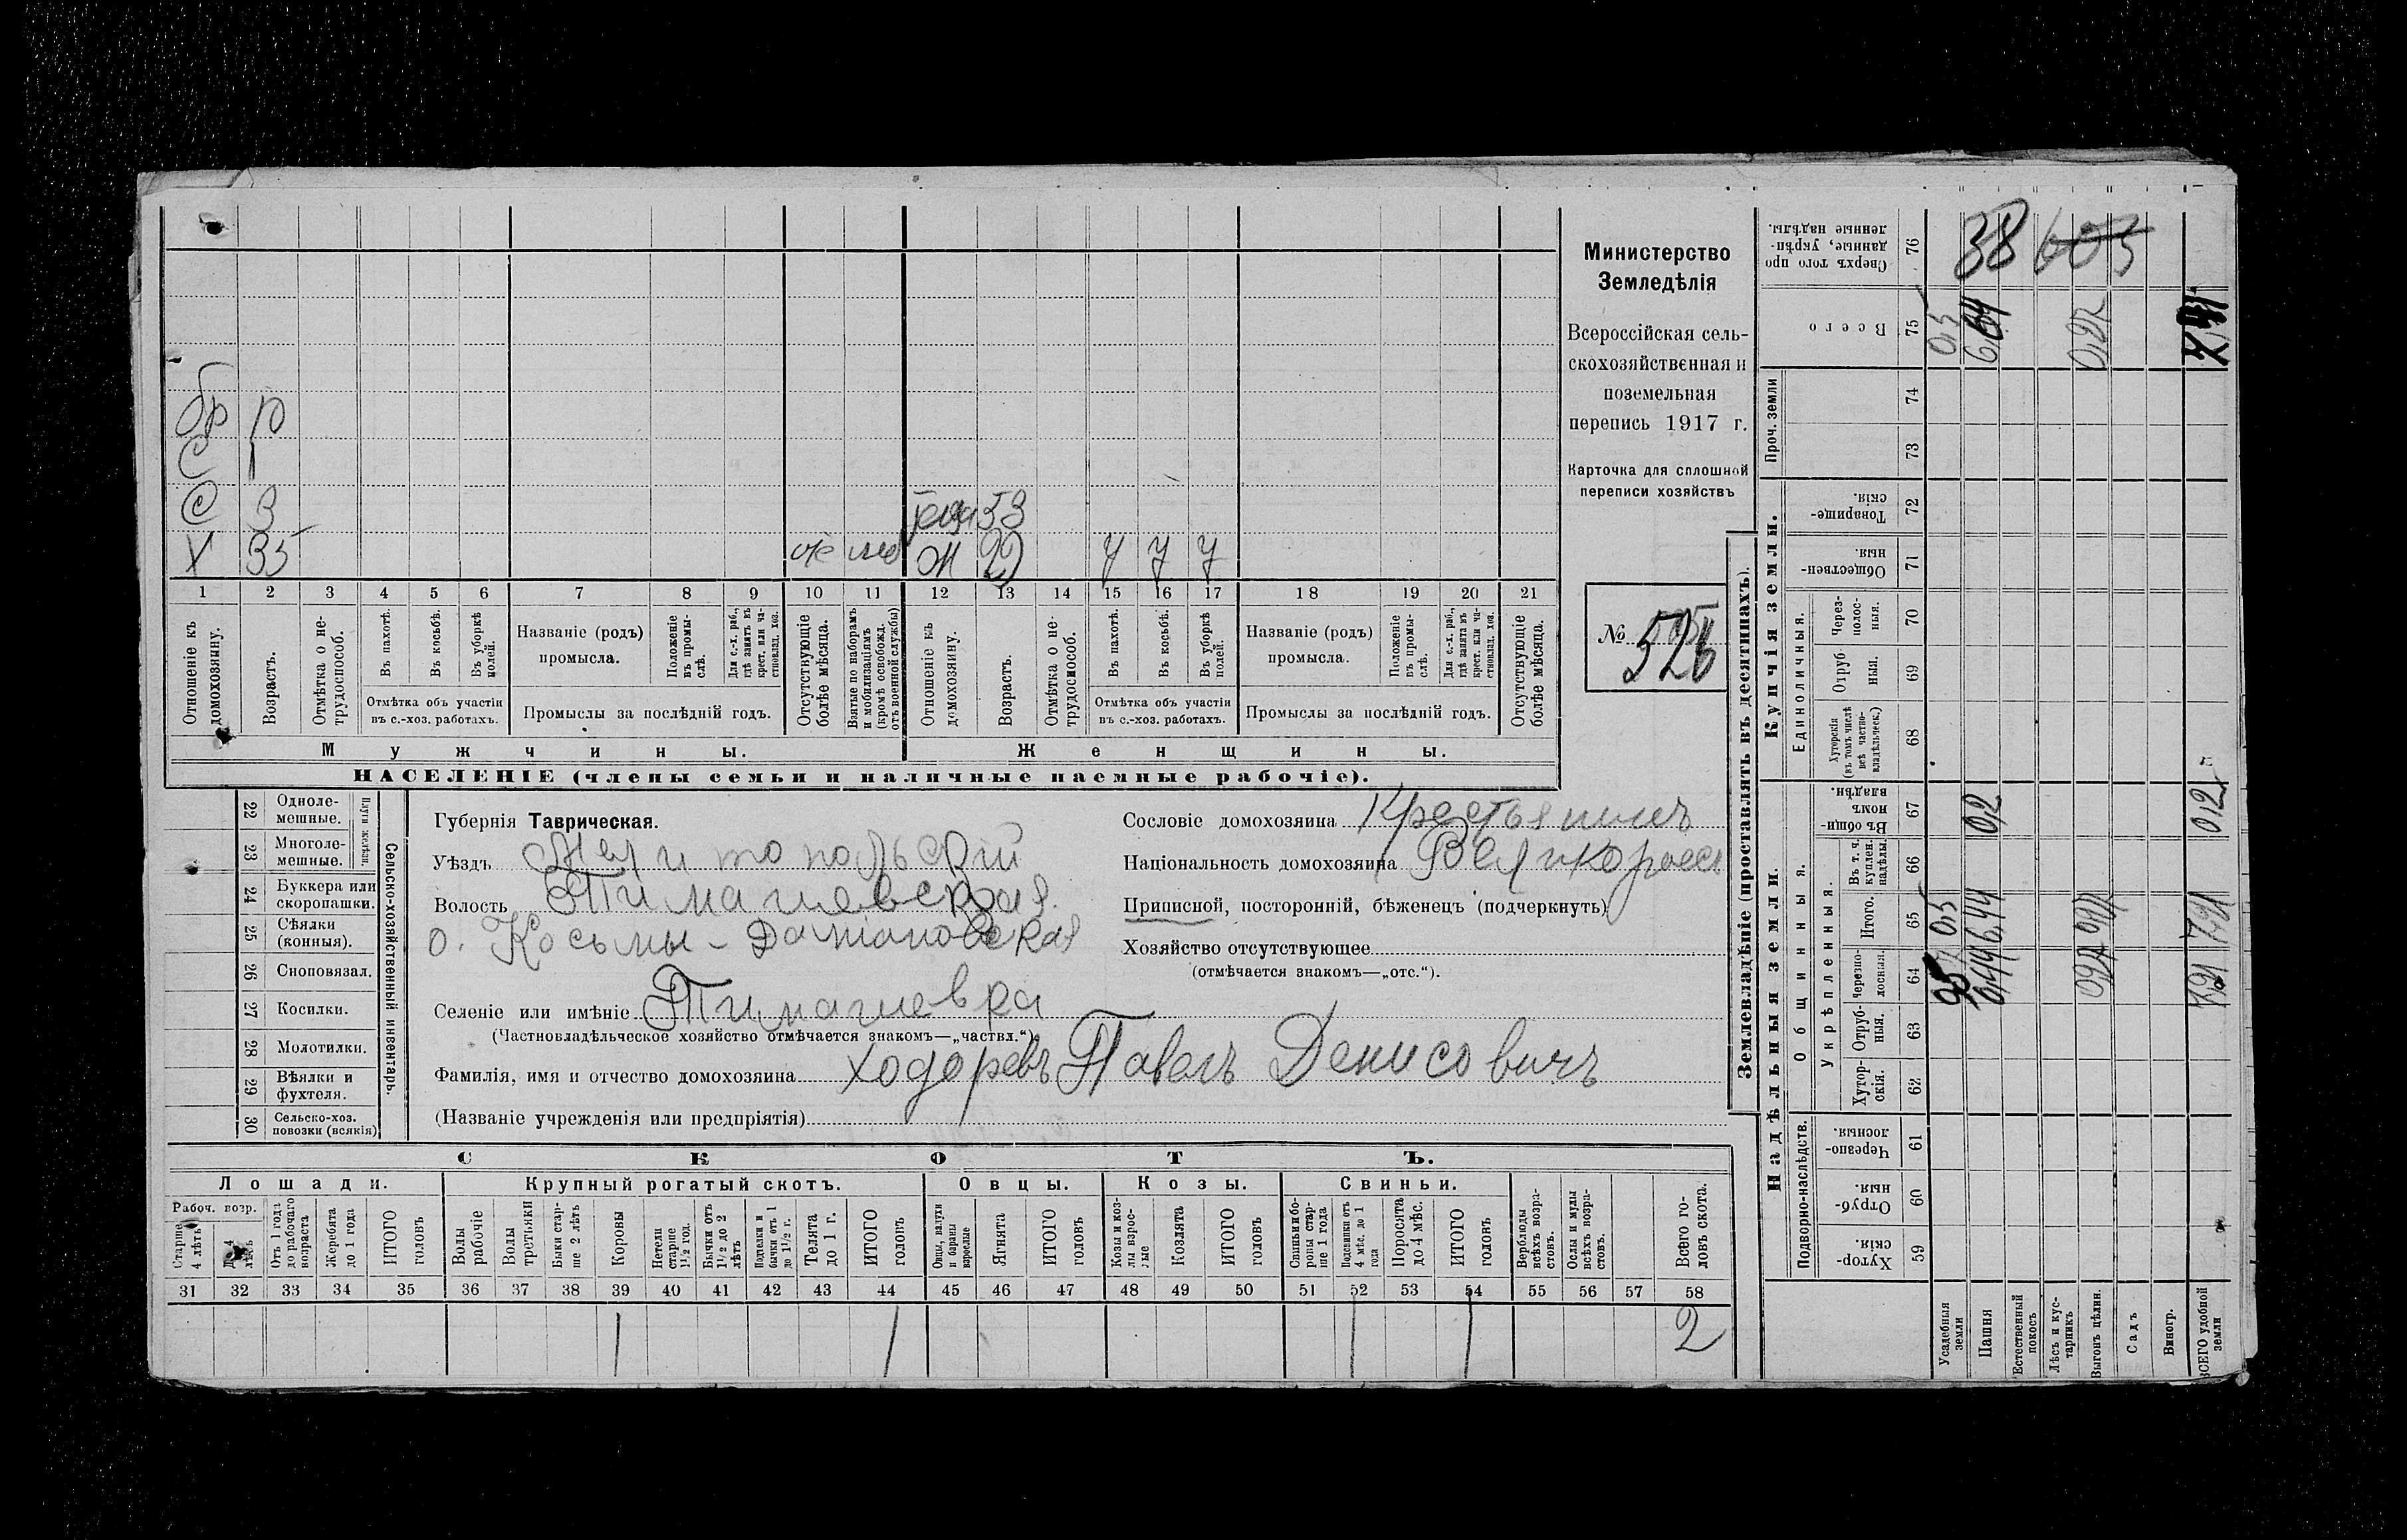 Министерство
Земледѣлія
Всероссійская сель-
скохозяйственная и
поземельная
перепись 1917 г.
Карточка для сплошной
переписи хозяйствъ
№ 526
бр
С
С 3
Х 35
53
Ж 29 У У У
1 2 3 4 5 6 7 8 9 10 11 12 13 14 15 16 17 18 19 20 21
Отношеніе къ домохозяину.
Возрастъ.
Отмѣтка о не-трудоспособ.
Въ пахотѣ.
Въ косьбѣ.
Въ уборкѣ полей.
Отмѣтка объ участіи
въ с.-хоз. работахъ.
Названіе (родъ)
промысла.
Положеніе въ промы-слѣ.
Для с.-х. раб., гдѣ занятъ въ крест. или ча-стновлад. хоз.
Промыслы за послѣдній годъ.
Отсутствующіе болѣе мѣсяца.
Взятые по наборамъ и мобилизаціямъ (кромѣ освобожд. отъ военной службы)
Отношеніе къ домохозяину.
Возрастъ.
Отмѣтка о не-трудоспособ.
Въ пахотѣ.
Въ косьбѣ.
Въ уборкѣ полей.
Отмѣтка объ участіи
въ с.-хоз. работахъ.
Названіе (родъ)
промысла.
Положеніе въ промы-слѣ.
Для с.-х. раб., гдѣ занята въ крест. или ча-стновлад. хоз.
Промыслы за послѣдній годъ.
Отсутствующіе болѣе мѣсяца.
Мужчины. Женщины.
НАСЕЛЕНІЕ (члены семьи и наличные наемные рабочіе).
Сельско-хозяйственный инвентарь.
Плуги желѣзн.
22 Одноле-мешные.
23 Многоле-мешные.
24 Буккера или скоропашки.
25 Сѣялки (конныя).
26 Сноповязал.
27 Косилки.
28 Молотилки.
29 Вѣялки и фухтеля.
30 Сельско-хоз. повозки (всякія)
Губернія Таврическая.
Уѣздъ Мелитопольскій
Волость Тимашевская
о. Косьмы-Даміановская
Селеніе или имѣніе Тимашевка
(Частновладѣльческое хозяйство отмѣчается знакомъ—„частвл.“)
Фамилія, имя и отчество домохозяина Ходоревъ Павелъ Денисовичъ
(Названіе учрежденія или предпріятія)
Сословіе домохозяина Крестьянинъ
Національность домохозяина Великоросс
Приписной, посторонній, бѣженецъ (подчеркнуть)
Хозяйство отсутствующее
(отмѣчается знакомъ—„отс.“).
СКОТЪ.
Лошади. Крупный рогатый скотъ. Овцы. Козы. Свиньи.
Рабоч. возр.
Старше 4 лѣтъ
Отъ 1 года до рабочаго возраста
Жеребята до 1 года
ИТОГО головъ
Волы рабочіе
Волы третьяки
Быки стар-ше 2 лѣтъ
Коровы
Нетели старше 1½ год.
Бычки отъ 1½ до 2 лѣтъ
Подтелки и бычки отъ 1 до 1½ г.
Телята до 1 г.
ИТОГО головъ
Овцы, валухи и бараны взрослые
Ягнята
ИТОГО головъ
Козы и коз-лы взрос-лые
Козлята
ИТОГО головъ
Свиньи и бо-ровы стар-ше 1 года
Подсвинки отъ 4 мѣс. до 1 года
Поросята до 4 мѣс.
ИТОГО головъ
Верблюды всѣхъ возра-стовъ.
Ослы и мулы всѣхъ возра-стовъ.
Всего го-ловъ скота.
31 32 33 34 35 36 37 38 39 40 41 42 43 44 45 46 47 48 49 50 51 52 53 54 55 56 57 58
1 1 1 1 2
Землевладѣніе (проставлять въ десятинахъ).
Надѣльныя земли. Купчія земли. Проч. земли
Подворно-наслѣдств.
Общинныя.
Укрѣпленныя.
Единоличныя.
59 Хутор-скія.
60 Отруб-ныя.
61 Черезпо-лосныя.
62 Хутор-скія.
63 Отруб-ныя.
64 Черезпо-лосныя.
65 Итого.
66 Въ т. ч. куплен. надѣлы.
67 Въ общи-номъ владѣн.
68 Хуторскія (въ томъ числѣ всѣ частно-владѣльческ.)
69 Отруб ныя.
70 Через-полос-ныя.
71 Обществен-ныя.
72 Товарище-скія.
73
74
75 Всего
76 Сверхъ того про данные, укрѣп-ленные надѣлы.
Усадебныя земли 0,5 0,5
Пашня 6,44 0,2 6,64
Естественный покосъ
Лѣсъ и кус-тарникъ
Выгонъ цѣлин. 0,27
Садъ
Виногр.
ВСЕГО удобной земли 0,2
38